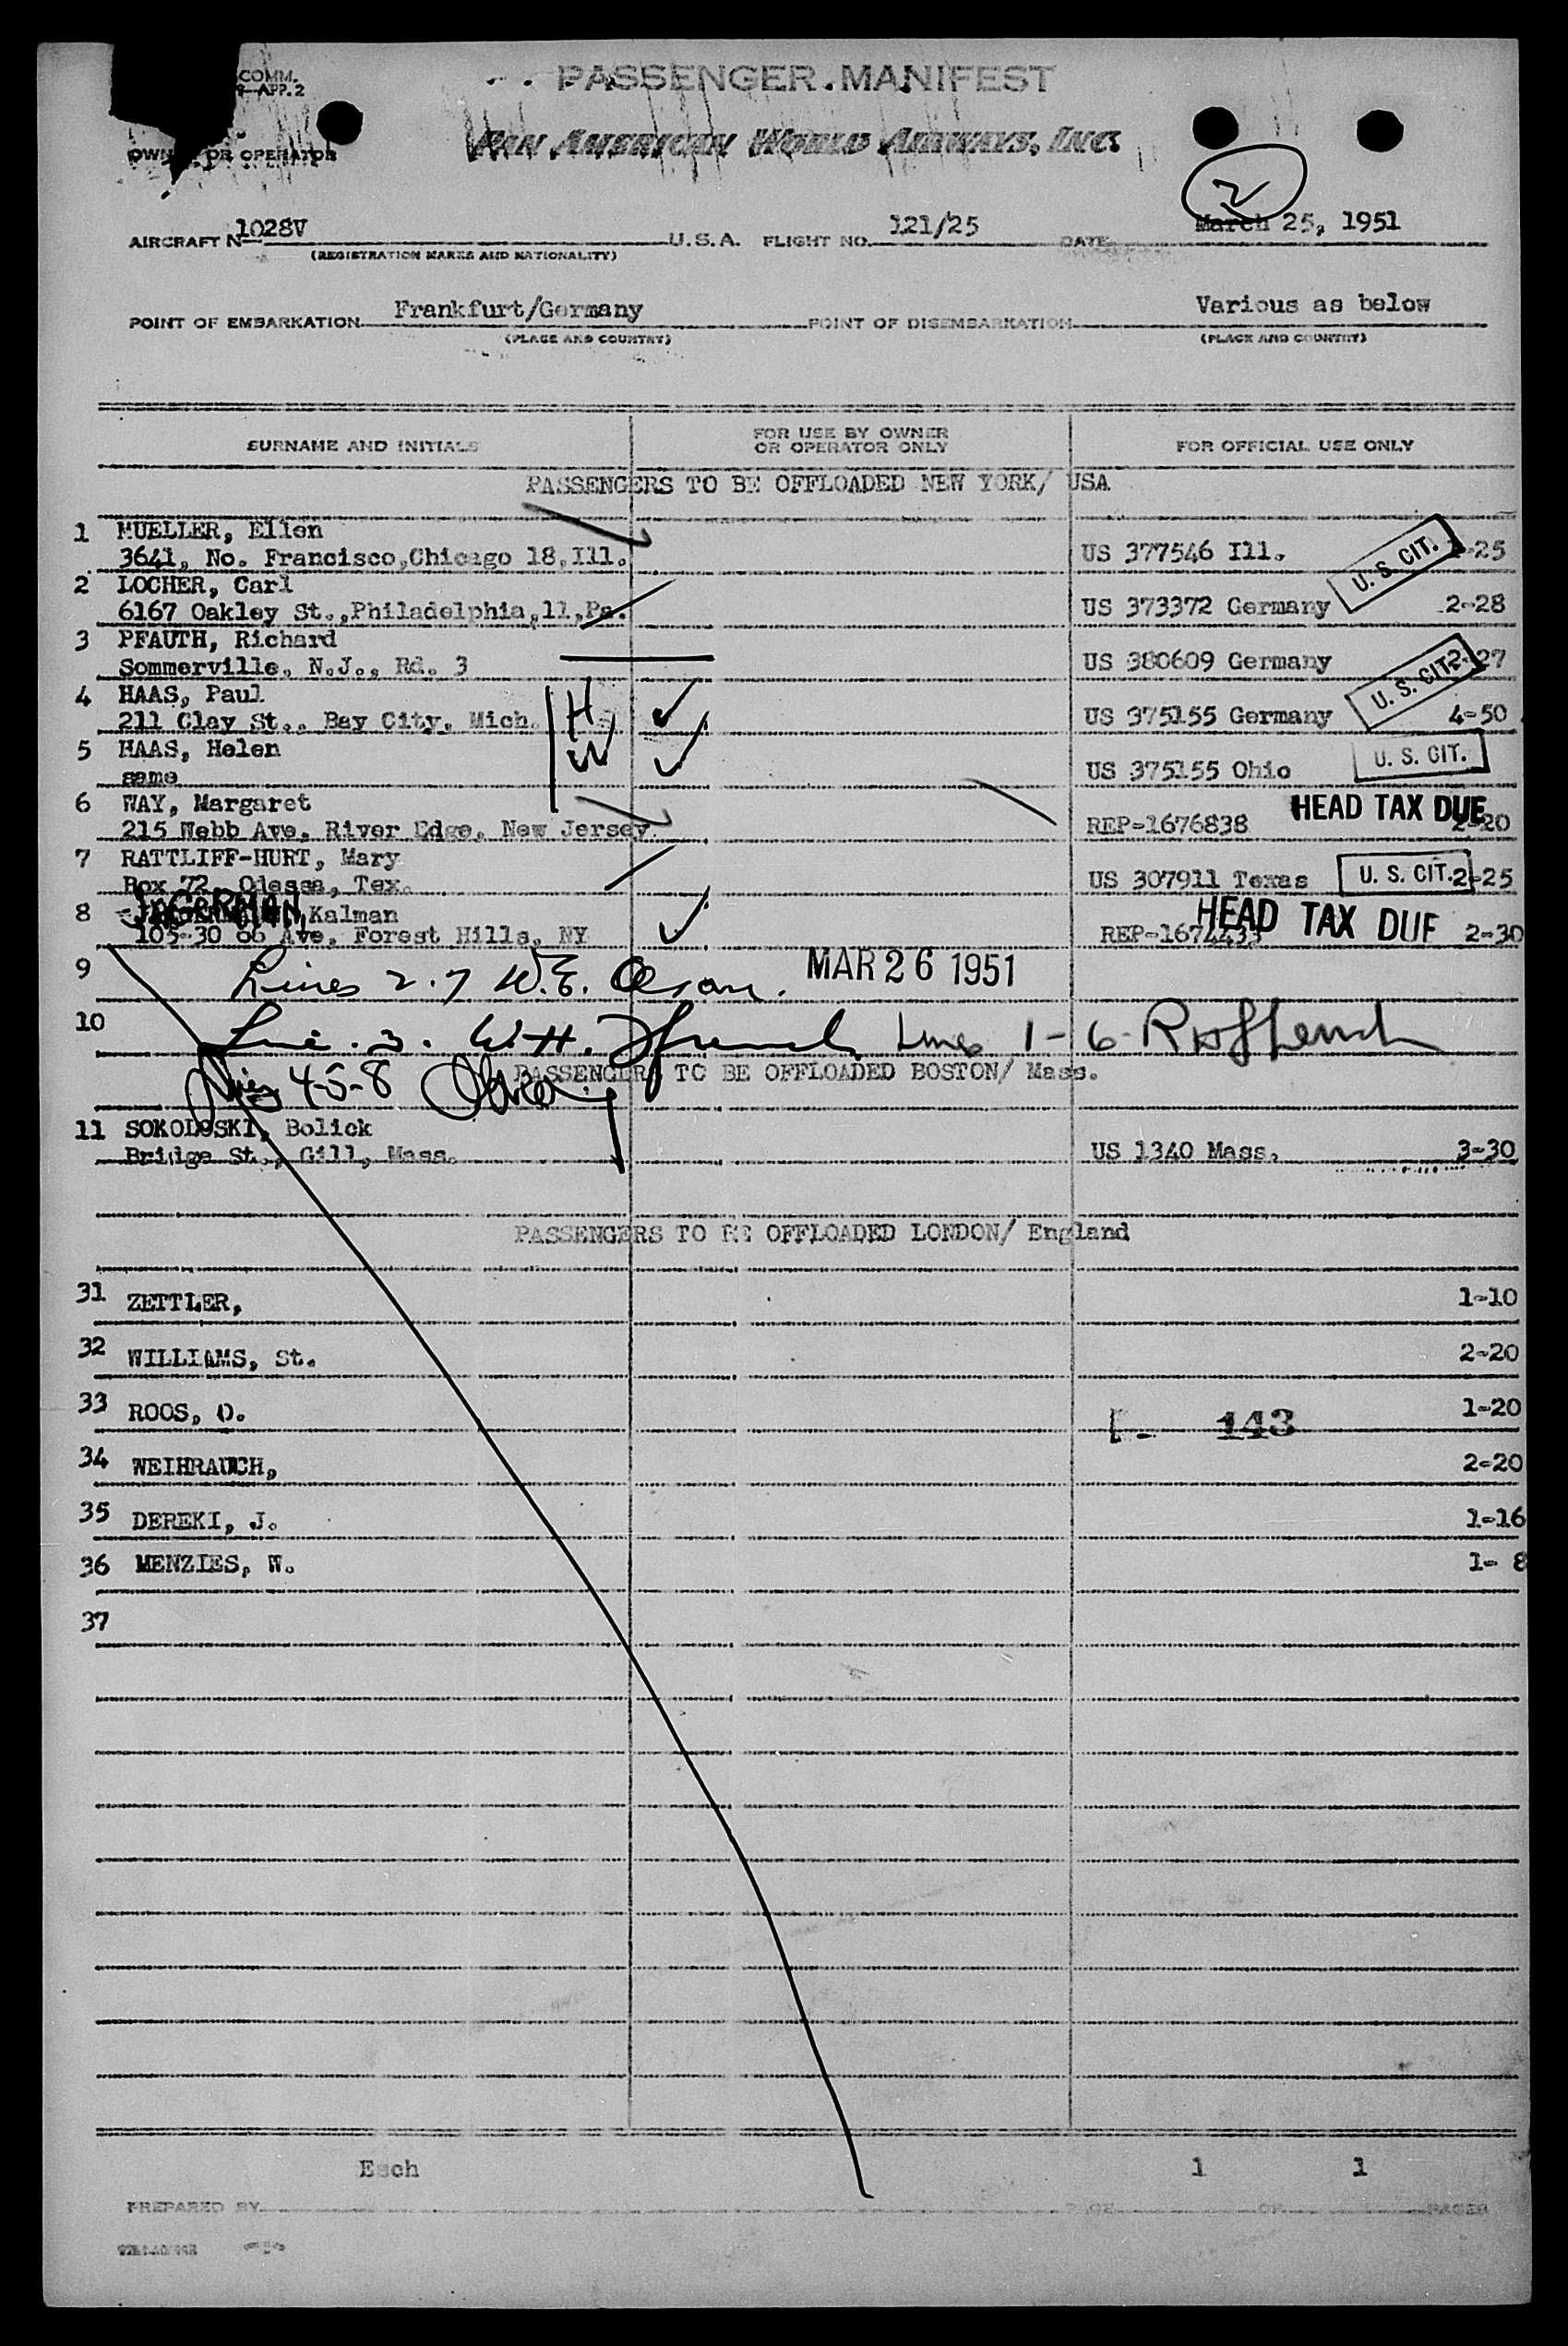 COMM.
9-APP.2
PASSENGER MANIFEST
OWNER OR OPERATOR
PAN AMERICAN WORLD AIRWAYS, INC.
2
AIRCRAFT No 1028V U.S.A. FLIGHT NO. 121/25 DATE March 25, 1951
(REGISTRATION MARKS AND NATIONALITY)
POINT OF EMBARKATION Frankfurt/Germany POINT OF DISEMBARKATION Various as below
(PLACE AND COUNTRY) (PLACE AND COUNTRY)
SURNAME AND INITIALS FOR USE BY OWNER OR OPERATOR ONLY FOR OFFICIAL USE ONLY
PASSENGERS TO BE OFFLOADED NEW YORK/ USA
1 MUELLER, Ellen
3641, No. Francisco,Chicago 18,Ill. US 377546 Ill. U. S. CIT. -25
2 LOCHER, Carl
6167 Oakley St.,Philadelphia,11,Pa. US 373372 Germany 2-28
3 PFAUTH, Richard
Sommerville, N.J., Rd. 3 US 380609 Germany U. S. CIT. 2-27
4 HAAS, Paul
211 Clay St., Bay City, Mich. H US 375155 Germany 4-50
5 HAAS, Helen
same W US 375155 Ohio U. S. CIT.
6 WAY, Margaret
215 Webb Ave, River Edge, New Jersey. REP-1676838 HEAD TAX DUE 2-20
7 RATTLIFF-HURT, Mary
Box 72, Odessa, Tex. US 307911 Texas U. S. CIT. 2-25
8 InGERMAN, Kalman
105-30 66 Ave, Forest Hills, NY REP-1674433 HEAD TAX DUE 2-30
9 Lines 2.7 W.E. Olson. MAR 26 1951
10 Line. 3. W.H. French Lines 1-6
Lines 4-5-8
PASSENGERS TO BE OFFLOADED BOSTON/ Mass.
11 SOKOLOSKI, Bolick
Bridge St., Gill, Mass. US 1340 Mass. 3-30
PASSENGERS TO BE OFFLOADED LONDON/ England
31 ZETTLER, 1-10
32 WILLIAMS, St. 2-20
33 ROOS, O. 143 1-20
34 WEIHRAUCH, 2-20
35 DEREKI, J. 1-16
36 MENZIES, W. 1- 8
37
PREPARED BY Esch PAGE 1 OF 1 PAGES